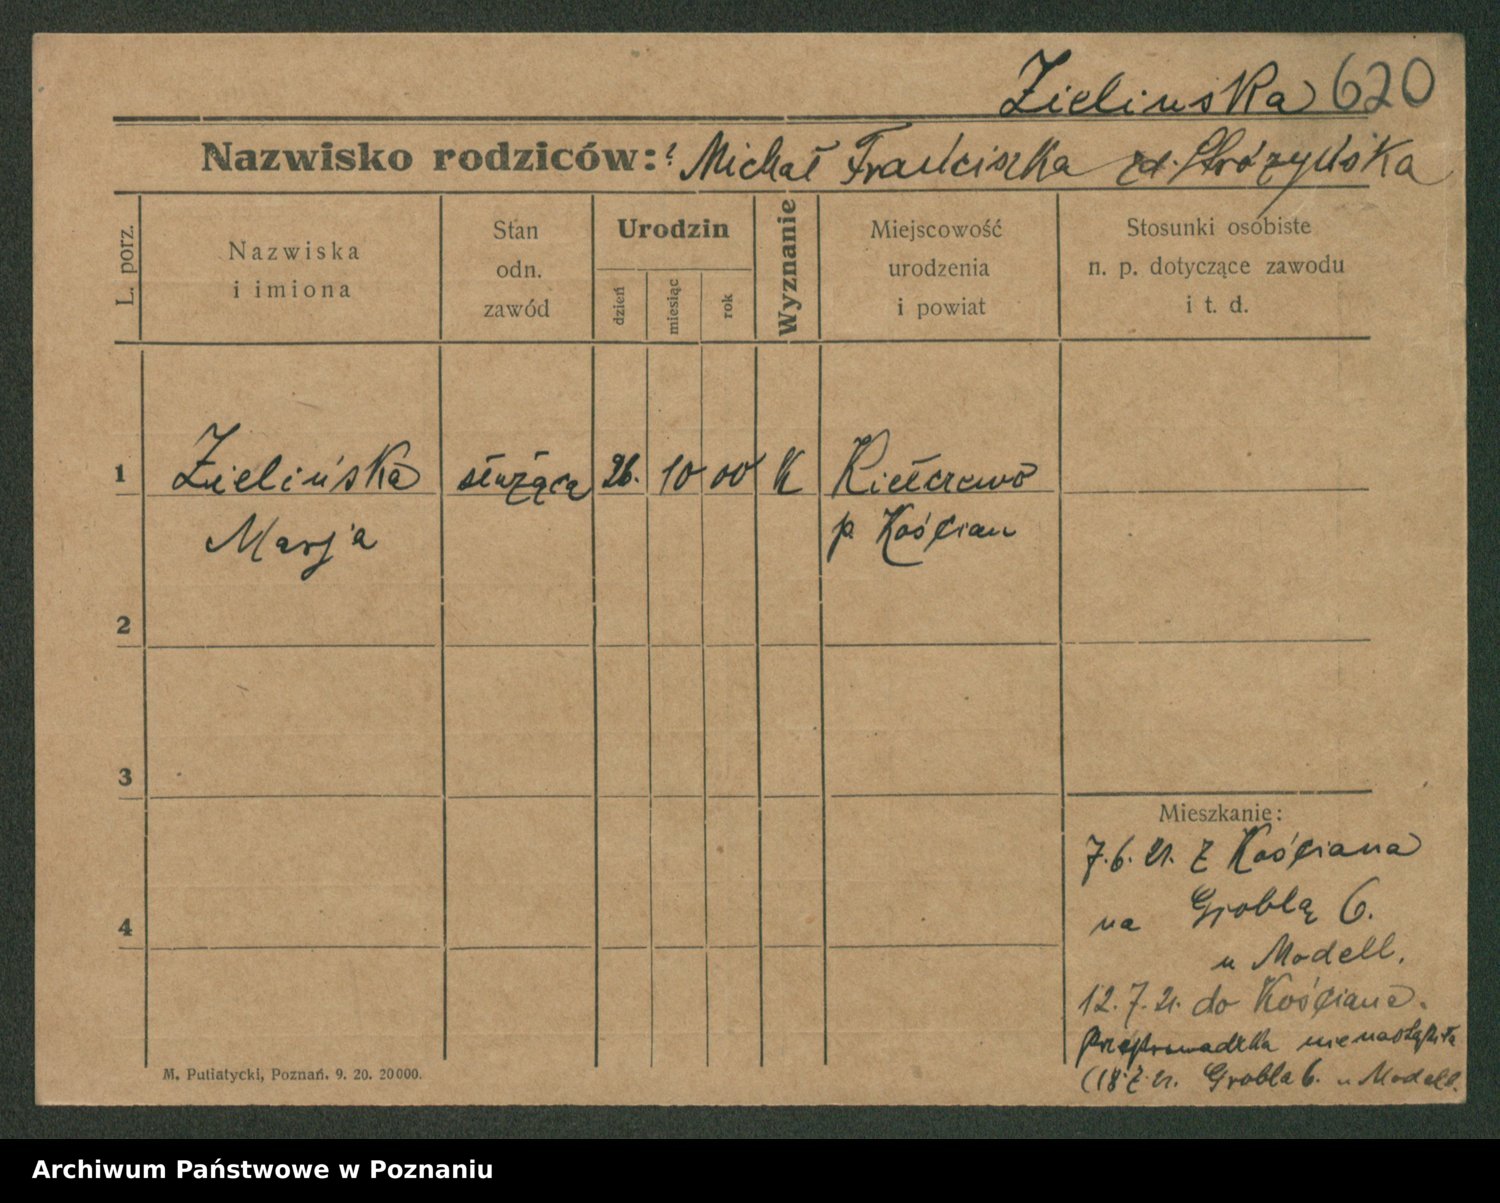 Zielinska 620
Nazwisko rodziców: Michał Franciszka zd. Stróżyńska
L. porz.
Nazwiska
i imiona
Stan
odn.
zawód
Urodzin
dzień
miesiąc
rok
Wyznanie
Miejscowość
urodzenia
i powiat
Stosunki osobiste
n. p. dotyczące zawodu
i t. d.
1 Zielińska służąca 26. 10 00 K Kiełczewo
Marja p. Kościan
2
3
4
Mieszkanie:
7.6.21. z Kościana
na Groblą 6.
u Modell.
12.7.21. do Kościana.
Przeprowadzka nie nastąpiła
(18.7.21. Grobla 6. u Modell.
M. Putiatycki, Poznań. 9. 20. 20000.
Archiwum Państwowe w Poznaniu